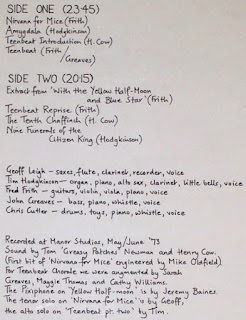 SIDE ONE (23:45)
Nirvana for Mice (Frith)
Amygdala (Hodgkinson)
Teenbeat Introduction (H. Cow)
Teenbeat (Frith /
Greaves)
SIDE TWO (20:15)
Extract from 'With the Yellow Half-Moon
and Blue Star' (Frith)
Teenbeat Reprise (Frith)
The Tenth Chaffinch (H. Cow)
Nine Funerals of the
Citizen King (Hodgkinson)
Geoff Leigh – saxes, flute, clarinet, recorder, voice
Tim Hodgkinson – organ, piano, alto sax, clarinet, little bells, voice
Fred Frith – guitars, violin, viola, piano, voice
John Greaves – bass, piano, whistle, voice
Chris Cutler – drums, toys, piano, whistle, voice
Recorded at Manor Studios, May/June '73
Sound by Tom 'Greasy Patches' Newman and Henry Cow.
(First bit of 'Nirvana for Mice' engineered by Mike Oldfield).
For Teenbeat Chorale we were augmented by Sarah
Greaves, Maggie Thomas and Cathy Williams.
The Pixiphone on 'Yellow Half-moon' is by Jeremy Baines.
The tenor solo on 'Nirvana for Mice' is by Geoff,
the alto solo on 'Teenbeat pt. two' by Tim.